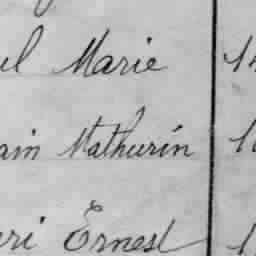 el Marie 1
ain Mathurin 1
ri Ernest 1